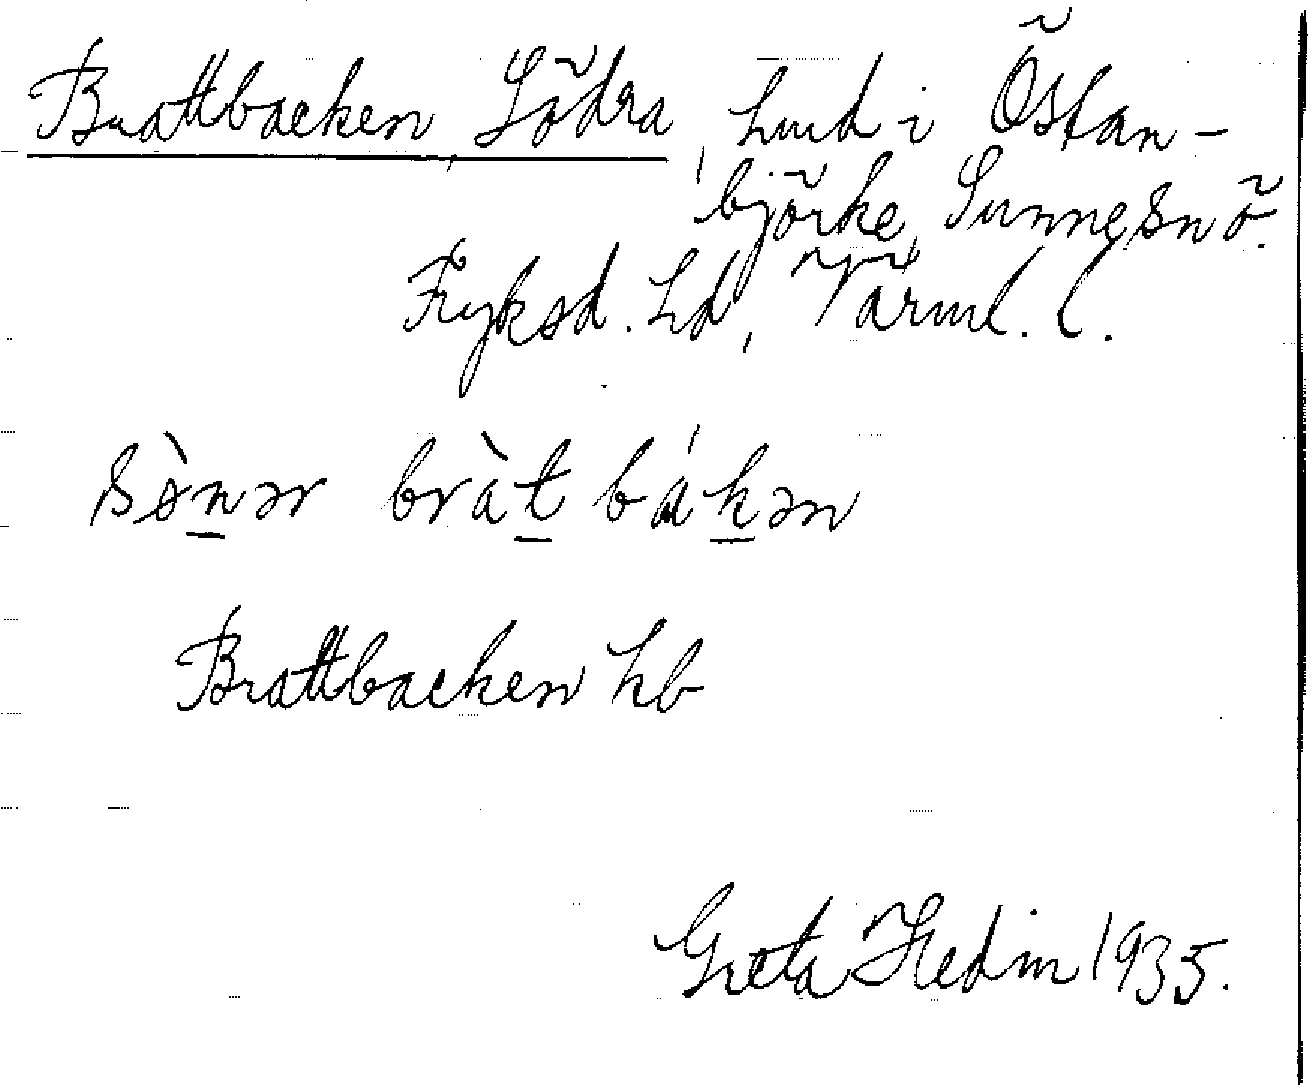 Brattbacken, Södra, hmd i Östan-
björke, Sunne sn ö.
Fryksd. hd, Värml. l.
sǿnər bràt bákən
Brattbacken hb
Greta Hedin 1935.